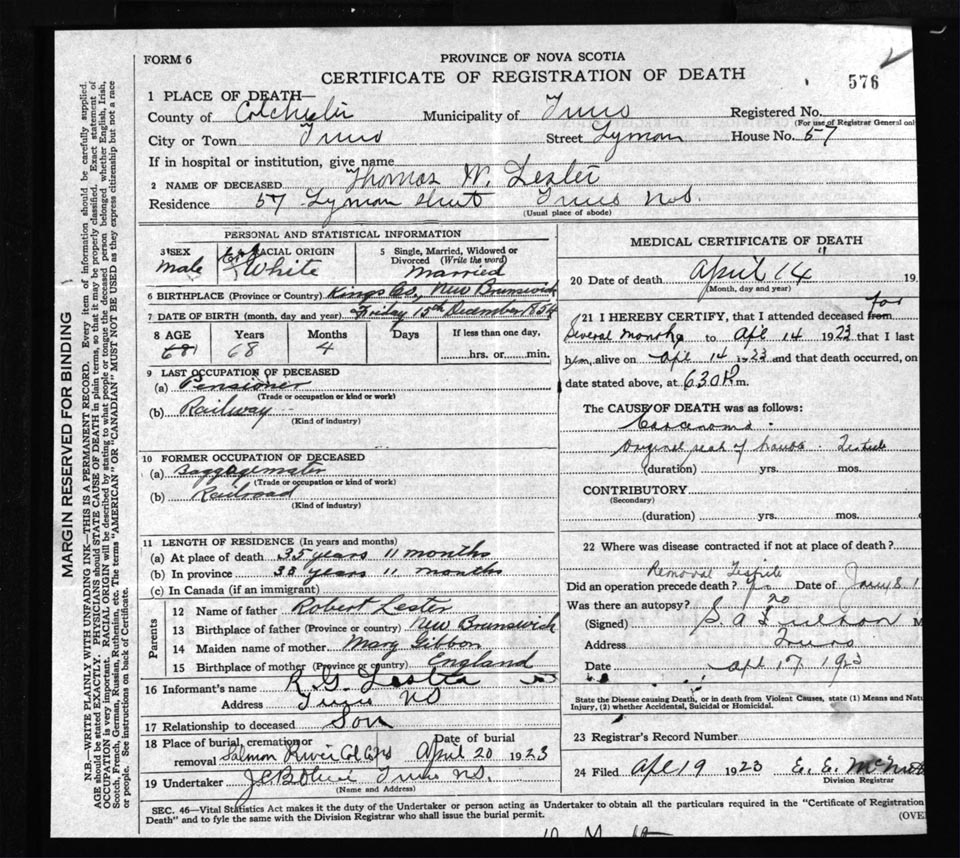 FORM 6
PROVINCE OF NOVA SCOTIA
CERTIFICATE OF REGISTRATION OF DEATH
576
1 PLACE OF DEATH—
County of Colchester Municipality of Truro Registered No.
(For use of Registrar General onl
City or Town Truro Street Lyman House No. 57
If in hospital or institution, give name
2 NAME OF DECEASED Thomas W. Lester
Residence 57 Lyman Street Truro N.S.
(Usual place of abode)
PERSONAL AND STATISTICAL INFORMATION
3 SEX Male
RACIAL ORIGIN White
5 Single, Married, Widowed or Divorced (Write the word) Married
6 BIRTHPLACE (Province or Country) Kings Co., New Brunswick
7 DATE OF BIRTH (month, day and year) Friday 15th December 1854
8 AGE Years Months Days If less than one day,
68 68 4 hrs. or min.
9 LAST OCCUPATION OF DECEASED
(a) Pensioner
(Trade or occupation or kind or work)
(b) Railway
(Kind of industry)
10 FORMER OCCUPATION OF DECEASED
(a) Baggagemaster
(Trade or occupation or kind of work)
(b) Railroad
(Kind of industry)
11 LENGTH OF RESIDENCE (In years and months)
(a) At place of death 35 years 11 months
(b) In province years 11 months
(c) In Canada (if an immigrant)
Parents
12 Name of father Robert Lester
13 Birthplace of father (Province or country) New Brunswick
14 Maiden name of mother Mary Gibbon
15 Birthplace of mother (Province or country) England
16 Informant's name R. G. Lester
Address Truro NS
17 Relationship to deceased Son
18 Place of burial, cremation or removal Salmon River Col Co NS Date of burial April 20 1923
19 Undertaker Truro NS.
(Name and Address)
MEDICAL CERTIFICATE OF DEATH
20 Date of death April 14 19
(Month, day and year)
21 I HEREBY CERTIFY, that I attended deceased from for
several months to Apl 14 1923 that I last
him, alive on Apl 14 1923 and that death occurred, on
date stated above, at 6.30 P m.
The CAUSE OF DEATH was as follows:
Carcinoma
Original seat of Testicle
(duration) yrs. mos.
CONTRIBUTORY
(Secondary)
(duration) yrs. mos.
22 Where was disease contracted if not at place of death?
Removal Testicle
Did an operation precede death? Date of
Was there an autopsy? no
(Signed) S. A. Fulton M
Address Truro
Date Apl 17 1923
State the Disease causing Death, or in death from Violent Causes, state (1) Means and Natu
Injury, (2) whether Accidental, Suicidal or Homicidal.
23 Registrar's Record Number
24 Filed Apl 19 1923 E. E.
Division Registrar
SEC. 46—Vital Statistics Act makes it the duty of the Undertaker or person acting as Undertaker to obtain all the particulars required in the "Certificate of Registration
Death" and to fyle the same with the Division Registrar who shall issue the burial permit.
(OVE
MARGIN RESERVED FOR BINDING
N.B.—WRITE PLAINLY WITH UNFADING INK—THIS IS A PERMANENT RECORD. Every item of information should be carefully supplied.
AGE should be stated EXACTLY. PHYSICIANS should STATE CAUSE OF DEATH in plain terms, so that it may be properly classified. Exact statement of
OCCUPATION is very important. RACIAL ORIGIN will be described by stating to what people or tongue the deceased person belonged whether English, Irish,
Scotch, French, German, Russian, Ruthenian, etc. The terms "AMERICAN" OR "CANADIAN" MUST NOT BE USED as they express citizenship but not a race
or people. See instructions on back of Certificate.